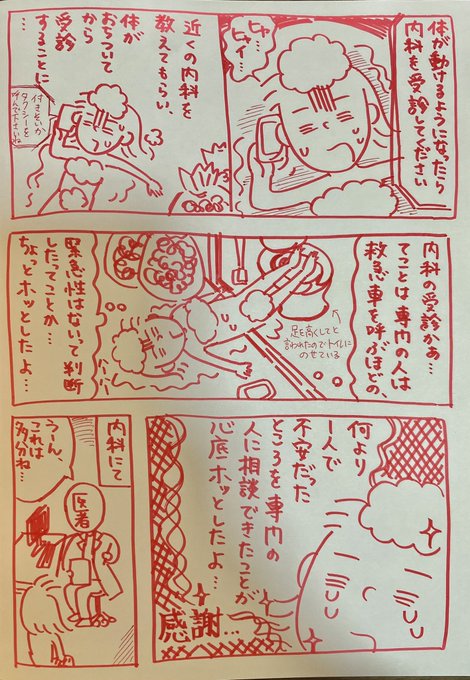 体が動けるようになったら
内科を受診してください
ヒャ…
ヒャイ…
近くの内科を
教えてもらい、
体が
おちついて
から
受診
することに
…
付きそいか
タクシーを
呼んで下さいね
内科の受診かぁ…
てことは専門の人は
救急車を呼ぶほどの、
足を高くしてと
言われたのでトイレに
のせている
緊急性はないって判断
したってことか…
ちょっとホッとしたよ…
何より
一人で
不安だった
ところを専門の
人に相談できたことが
心底ホッとしたよ…
感謝…
内科にて
うーん、
これは
多分ね…
医者